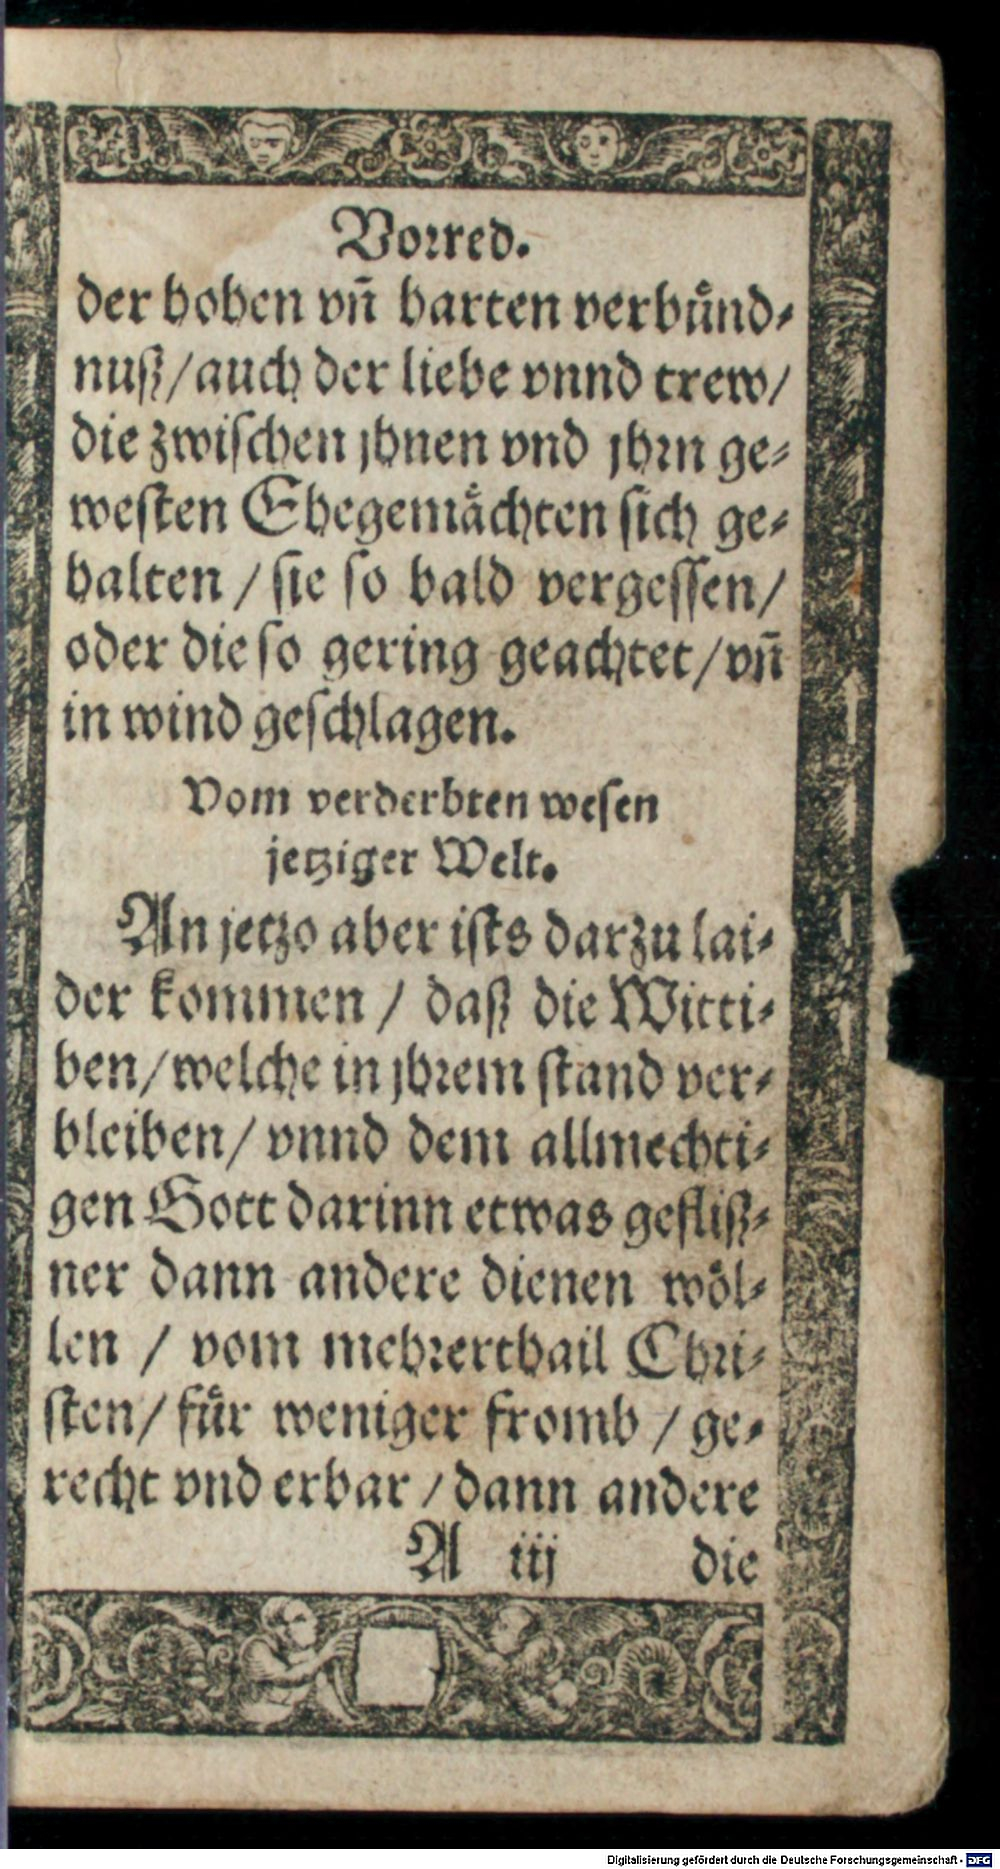 Vorred.
der hohen vñ harten verbuͤnd-
nuß/auch der liebe vnnd trew/
die zwischen jhnen vnd jhrn ge-
westen Ehegemaͤchten sich ge-
halten / sie so bald vergessen/
oder die so gering geachtet/vñ
in wind geschlagen.
Vom verderbten wesen
jetziger Welt.
An jetzo aber ists darzu lai-
der kommen / daß die Witti-
ben/welche in jhrem stand ver-
bleiben/ vnnd dem allmechti-
gen Gott darinn etwas gefliß-
ner dann andere dienen woͤl-
len / vom mehrerthail Chri-
sten/ fuͤr weniger fromb / ge-
recht vnd erbar / dann andere
A iij die
Digitalisierung gefördert durch die Deutsche Forschungsgemeinschaft - DFG